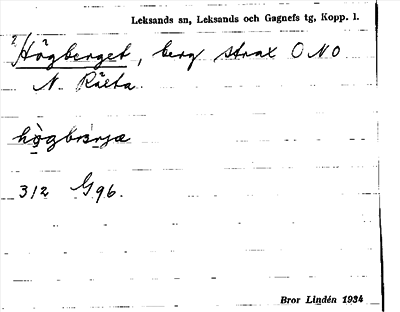 Leksands sn, Leksands och Gagnefs tg, Kopp. l.
? Högberget, berg strax ONO
N. Rälta.
312 G 96.
Bror Lindén 1934